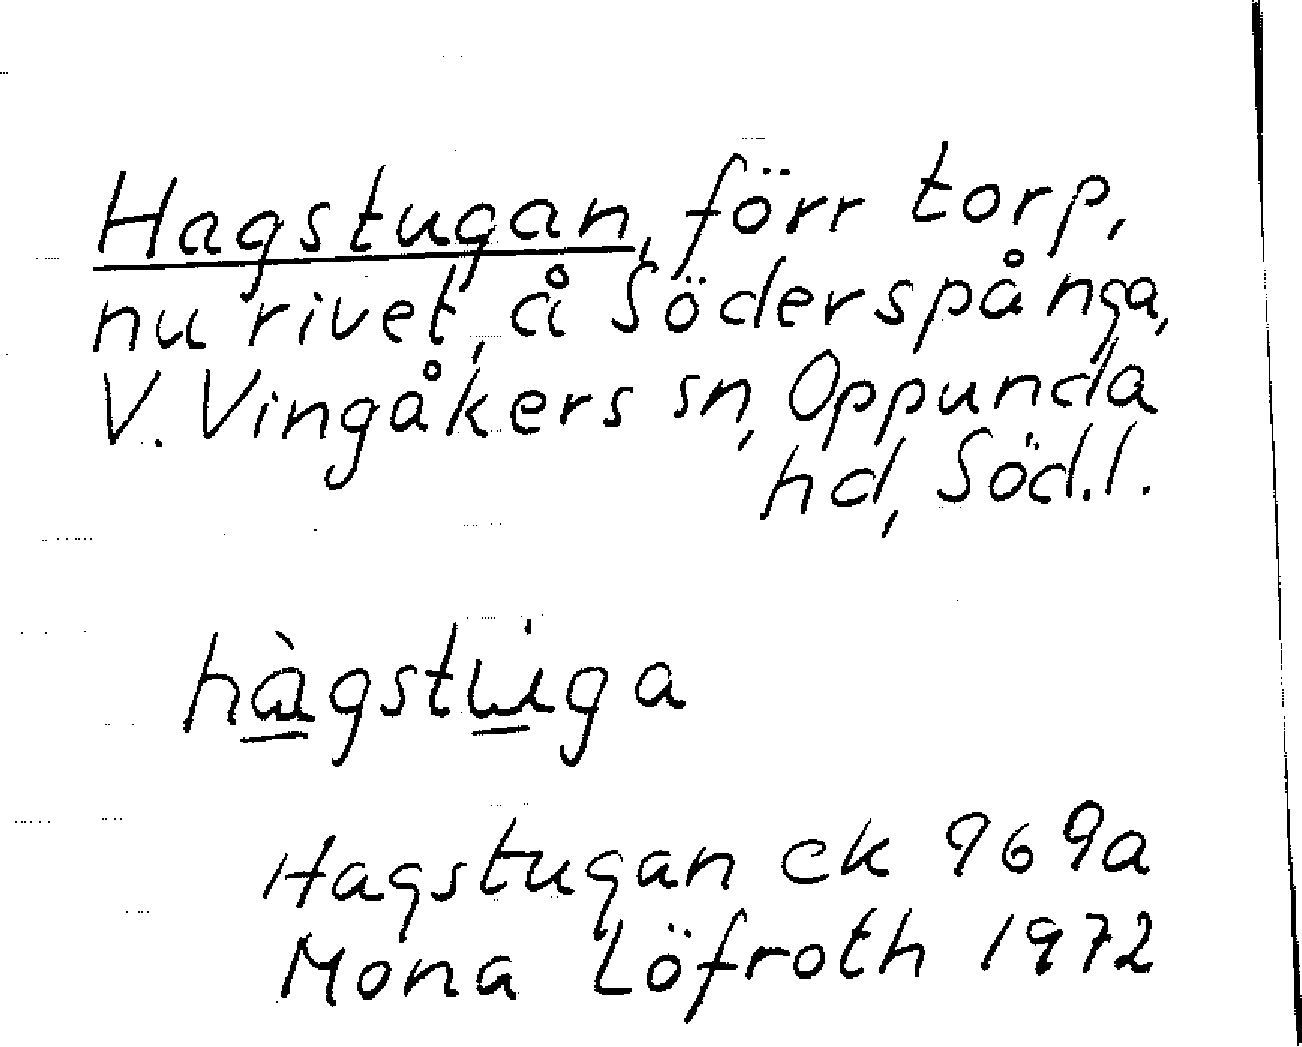 Hagstugan, förr torp,
nu rivet, å Söderspånga,
V. Vingåkers sn, Oppunda
hd, Söd.l.
hàgstu̇ga
Hagstugan ek 969a
Mona Löfroth 1972